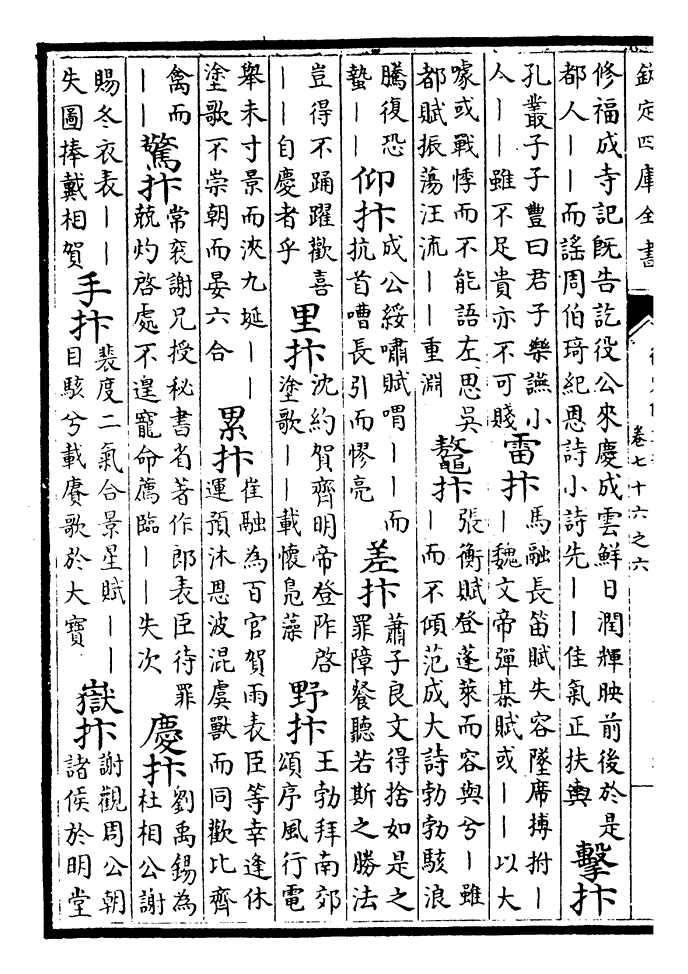 欽定四庫全書
卷七十六之六
修福成寺記旣告訖役公來慶成雲鮮日潤輝映前後於是
都人丨丨而謠周伯琦紀恩詩小詩先丨丨佳氣正扶輿
擊抃
孔叢子子豐曰君子樂讌小
人丨丨雖不足貴亦不可賤
雷抃
馬融長笛賦失容墜席搏拊丨
丨魏文帝彈棊賦或丨丨以大
噱或戰悸而不能語左思吳
都賦振蕩汪流丨丨重淵
鼇抃
張衡賦登蓬萊而容與兮丨雖
丨而不傾范成大詩勃勃駭浪
騰復恐
蟄丨丨
仰抃
成公綏嘯賦喟丨丨而
抗首嘈長引而憀亮
差抃
蕭子良文得捨如是之
罪障餐聽若斯之勝法
豈得不踊躍歡喜
丨丨自慶者乎
里抃
沈約賀齊明帝登阼啓
塗歌丨丨載懷鳧藻
野抃
王勃拜南郊
頌序風行電
舉未寸景而浹九埏丨丨
塗歌不崇朝而晏六合
累抃
崔融為百官賀雨表臣等幸逢休
運預沐恩波混虞獸而同歡比齊
禽而
丨丨
驚抃
常袞謝兄授秘書省著作郎表臣待罪
兢灼啓處不遑寵命薦臨丨丨失次
慶抃
劉禹錫為
杜相公謝
賜冬衣表丨丨
失圖捧戴相賀
手抃
裴度二氣合景星賦丨丨
目駭兮載賡歌於大寶
嶽抃
謝觀周公朝
諸侯於明堂